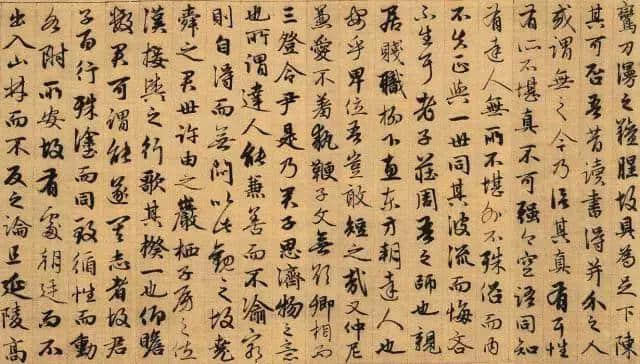 鸞刀漫之羶腥故具為足下陳
其可否吾昔讀書得并介之人
或謂無之今乃信其真有耳性
有所不堪真不可强今空語同知
有達人無所不堪外不殊俗而內
不失正與一世同其波流而悔吝
不生耳老子莊周吾之師也親
居賤職柳下惠東方朔達人也
安乎卑位吾豈敢短之哉又仲尼
兼愛不羞執鞭子文無欲卿相而
三登令尹是乃君子思濟物之意
也所謂達人能兼善而不渝窮
則自得而無悶以此觀之故堯
舜之君世許由之巖棲子房之佐
漢接輿之行歌其揆一也仰瞻
數君可謂能遂其志者故君
子百行殊塗而同致循性而動
各附所安故有處朝廷而不
出入山林而不反之論且延陵高